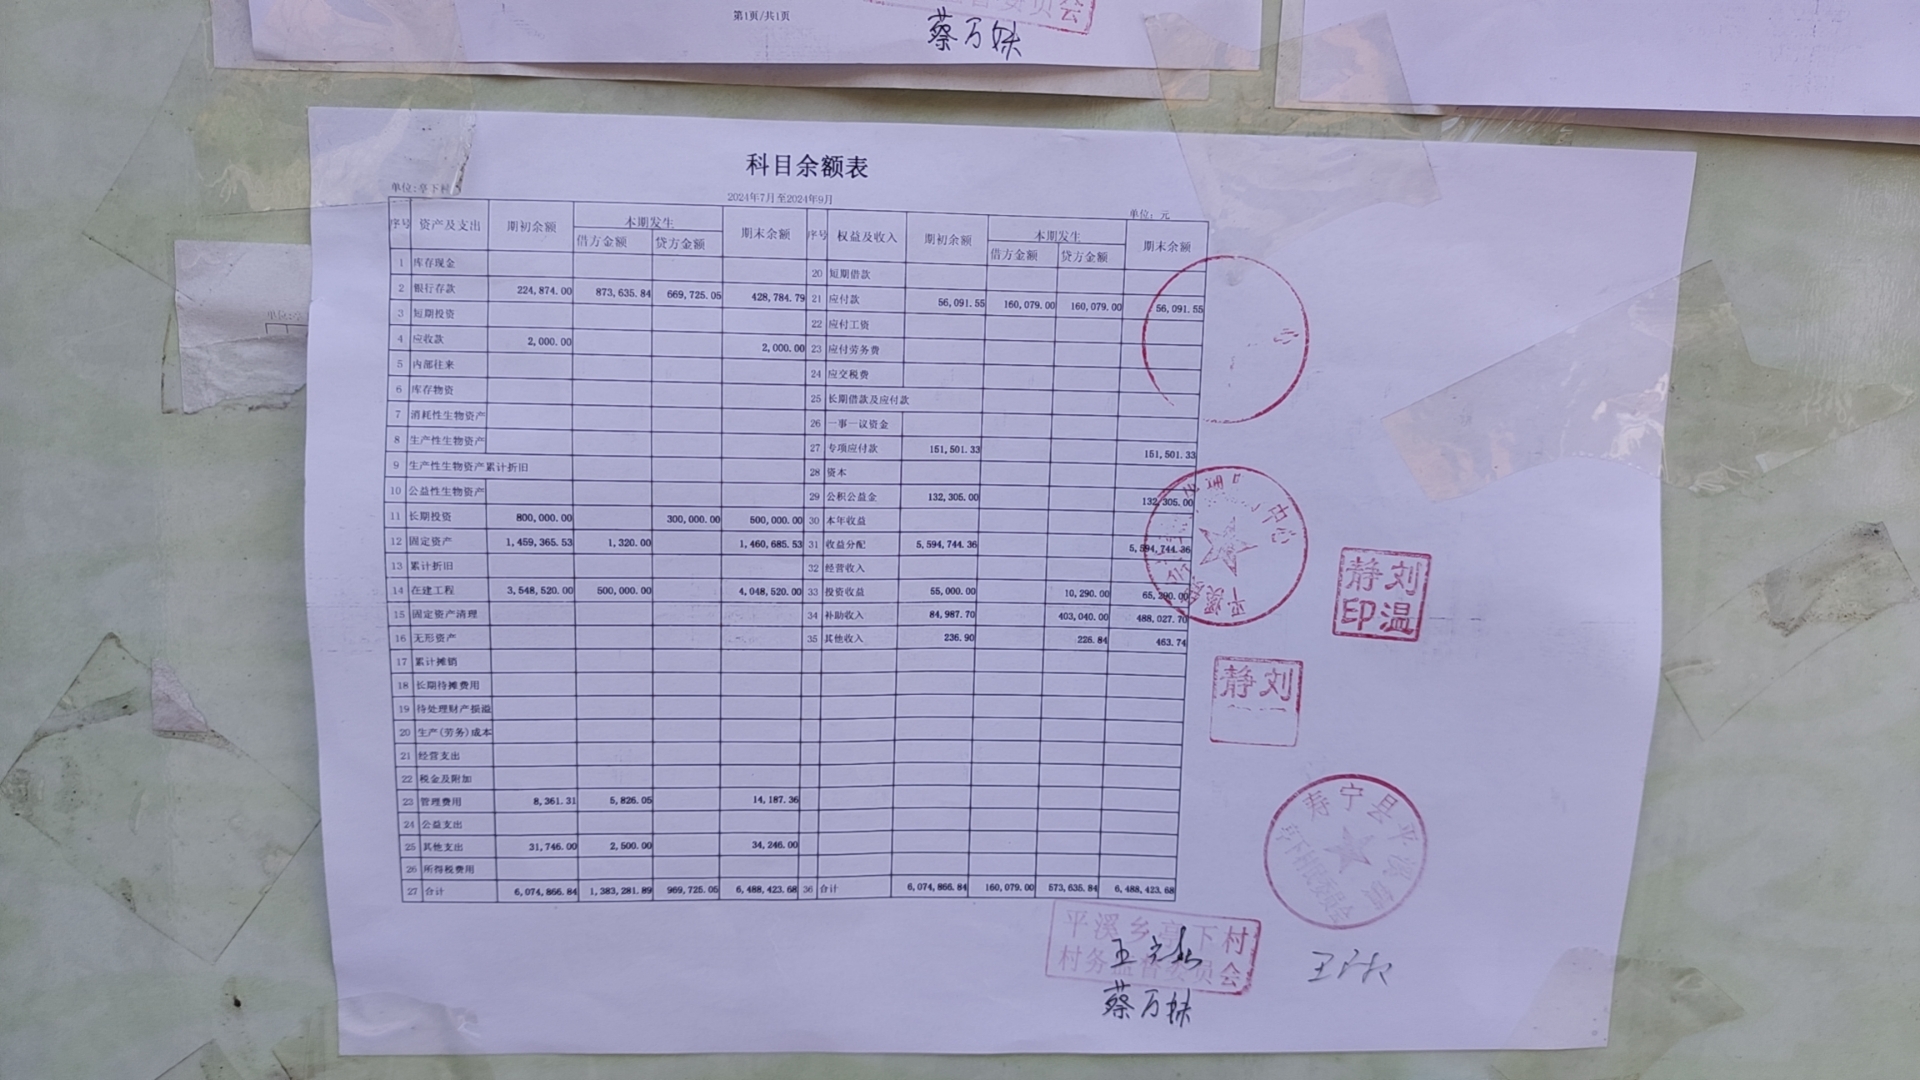 第1页/共1页
蔡万妹
科目余额表
单位:亭下村
2024年7月至2024年9月
单位：元
序号 资产及支出 期初余额 本期发生 期末余额 序号 权益及收入 期初余额 本期发生 期末余额
借方金额 贷方金额 借方金额 贷方金额
1 库存现金 20 短期借款
2 银行存款 224,874.00 873,635.84 669,725.05 428,784.79 21 应付款 56,091.55 160,079.00 160,079.00 56,091.55
3 短期投资 22 应付工资
4 应收款 2,000.00 2,000.00 23 应付劳务费
5 内部往来 24 应交税费
6 库存物资 25 长期借款及应付款
7 消耗性生物资产 26 一事一议资金
8 生产性生物资产 27 专项应付款 151,501.33 151,501.33
9 生产性生物资产累计折旧 28 资本
10 公益性生物资产 29 公积公益金 132,305.00 132,305.00
11 长期投资 800,000.00 300,000.00 500,000.00 30 本年收益
12 固定资产 1,459,365.53 1,320.00 1,460,685.53 31 收益分配 5,594,744.36 5,594,744.36
13 累计折旧 32 经营收入
14 在建工程 3,548,520.00 500,000.00 4,048,520.00 33 投资收益 55,000.00 10,290.00 65,290.00
15 固定资产清理 34 补助收入 84,987.70 403,040.00 488,027.70
16 无形资产 35 其他收入 236.90 226.84 463.74
17 累计摊销
18 长期待摊费用
19 待处理财产损溢
20 生产(劳务)成本
21 经营支出
22 税金及附加
23 管理费用 8,361.31 5,826.05 14,187.36
24 公益支出
25 其他支出 31,746.00 2,500.00 34,246.00
26 所得税费用
27 合计 6,074,866.84 1,383,281.89 969,725.05 6,488,423.68 36 合计 6,074,866.84 160,079.00 573,635.84 6,488,423.68
中心
刘温静印
刘静
寿宁县平溪镇
平溪乡亭下村
村务监督委员会
蔡万妹